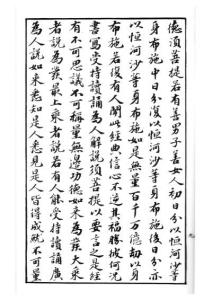 德須菩提若有善男子善女人初日分以恒河沙等
身布施中日分復以恒河沙等身布施後日分亦
以恒河沙等身布施如是無量百千万億劫以身
布施若復有人聞此經典信心不逆其福勝彼何況
書寫受持讀誦為人解說須菩提以要言之是經
有不可思議不可稱量無邊功德如來為發大乘
者說為發最上乘者說若有人能受持讀誦廣
為人說如來悉知是人悉見是人皆得成就不可量